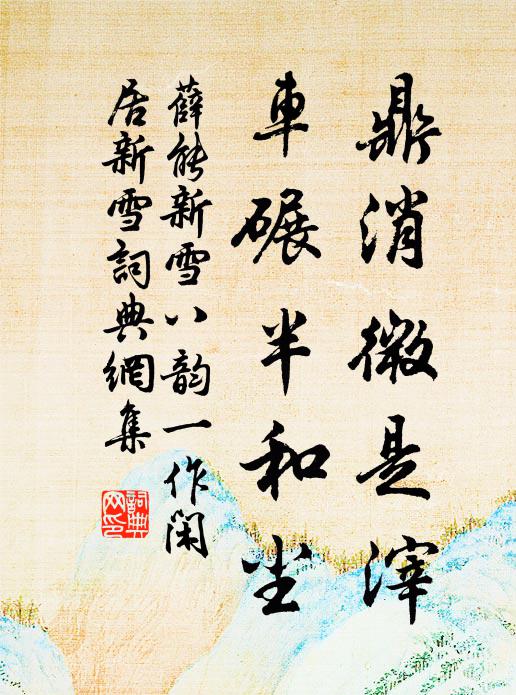 鼎消微是滓
車碾半和尘
薛能新雪八韵一作闲
居新雪詞典網集
詞典
网印